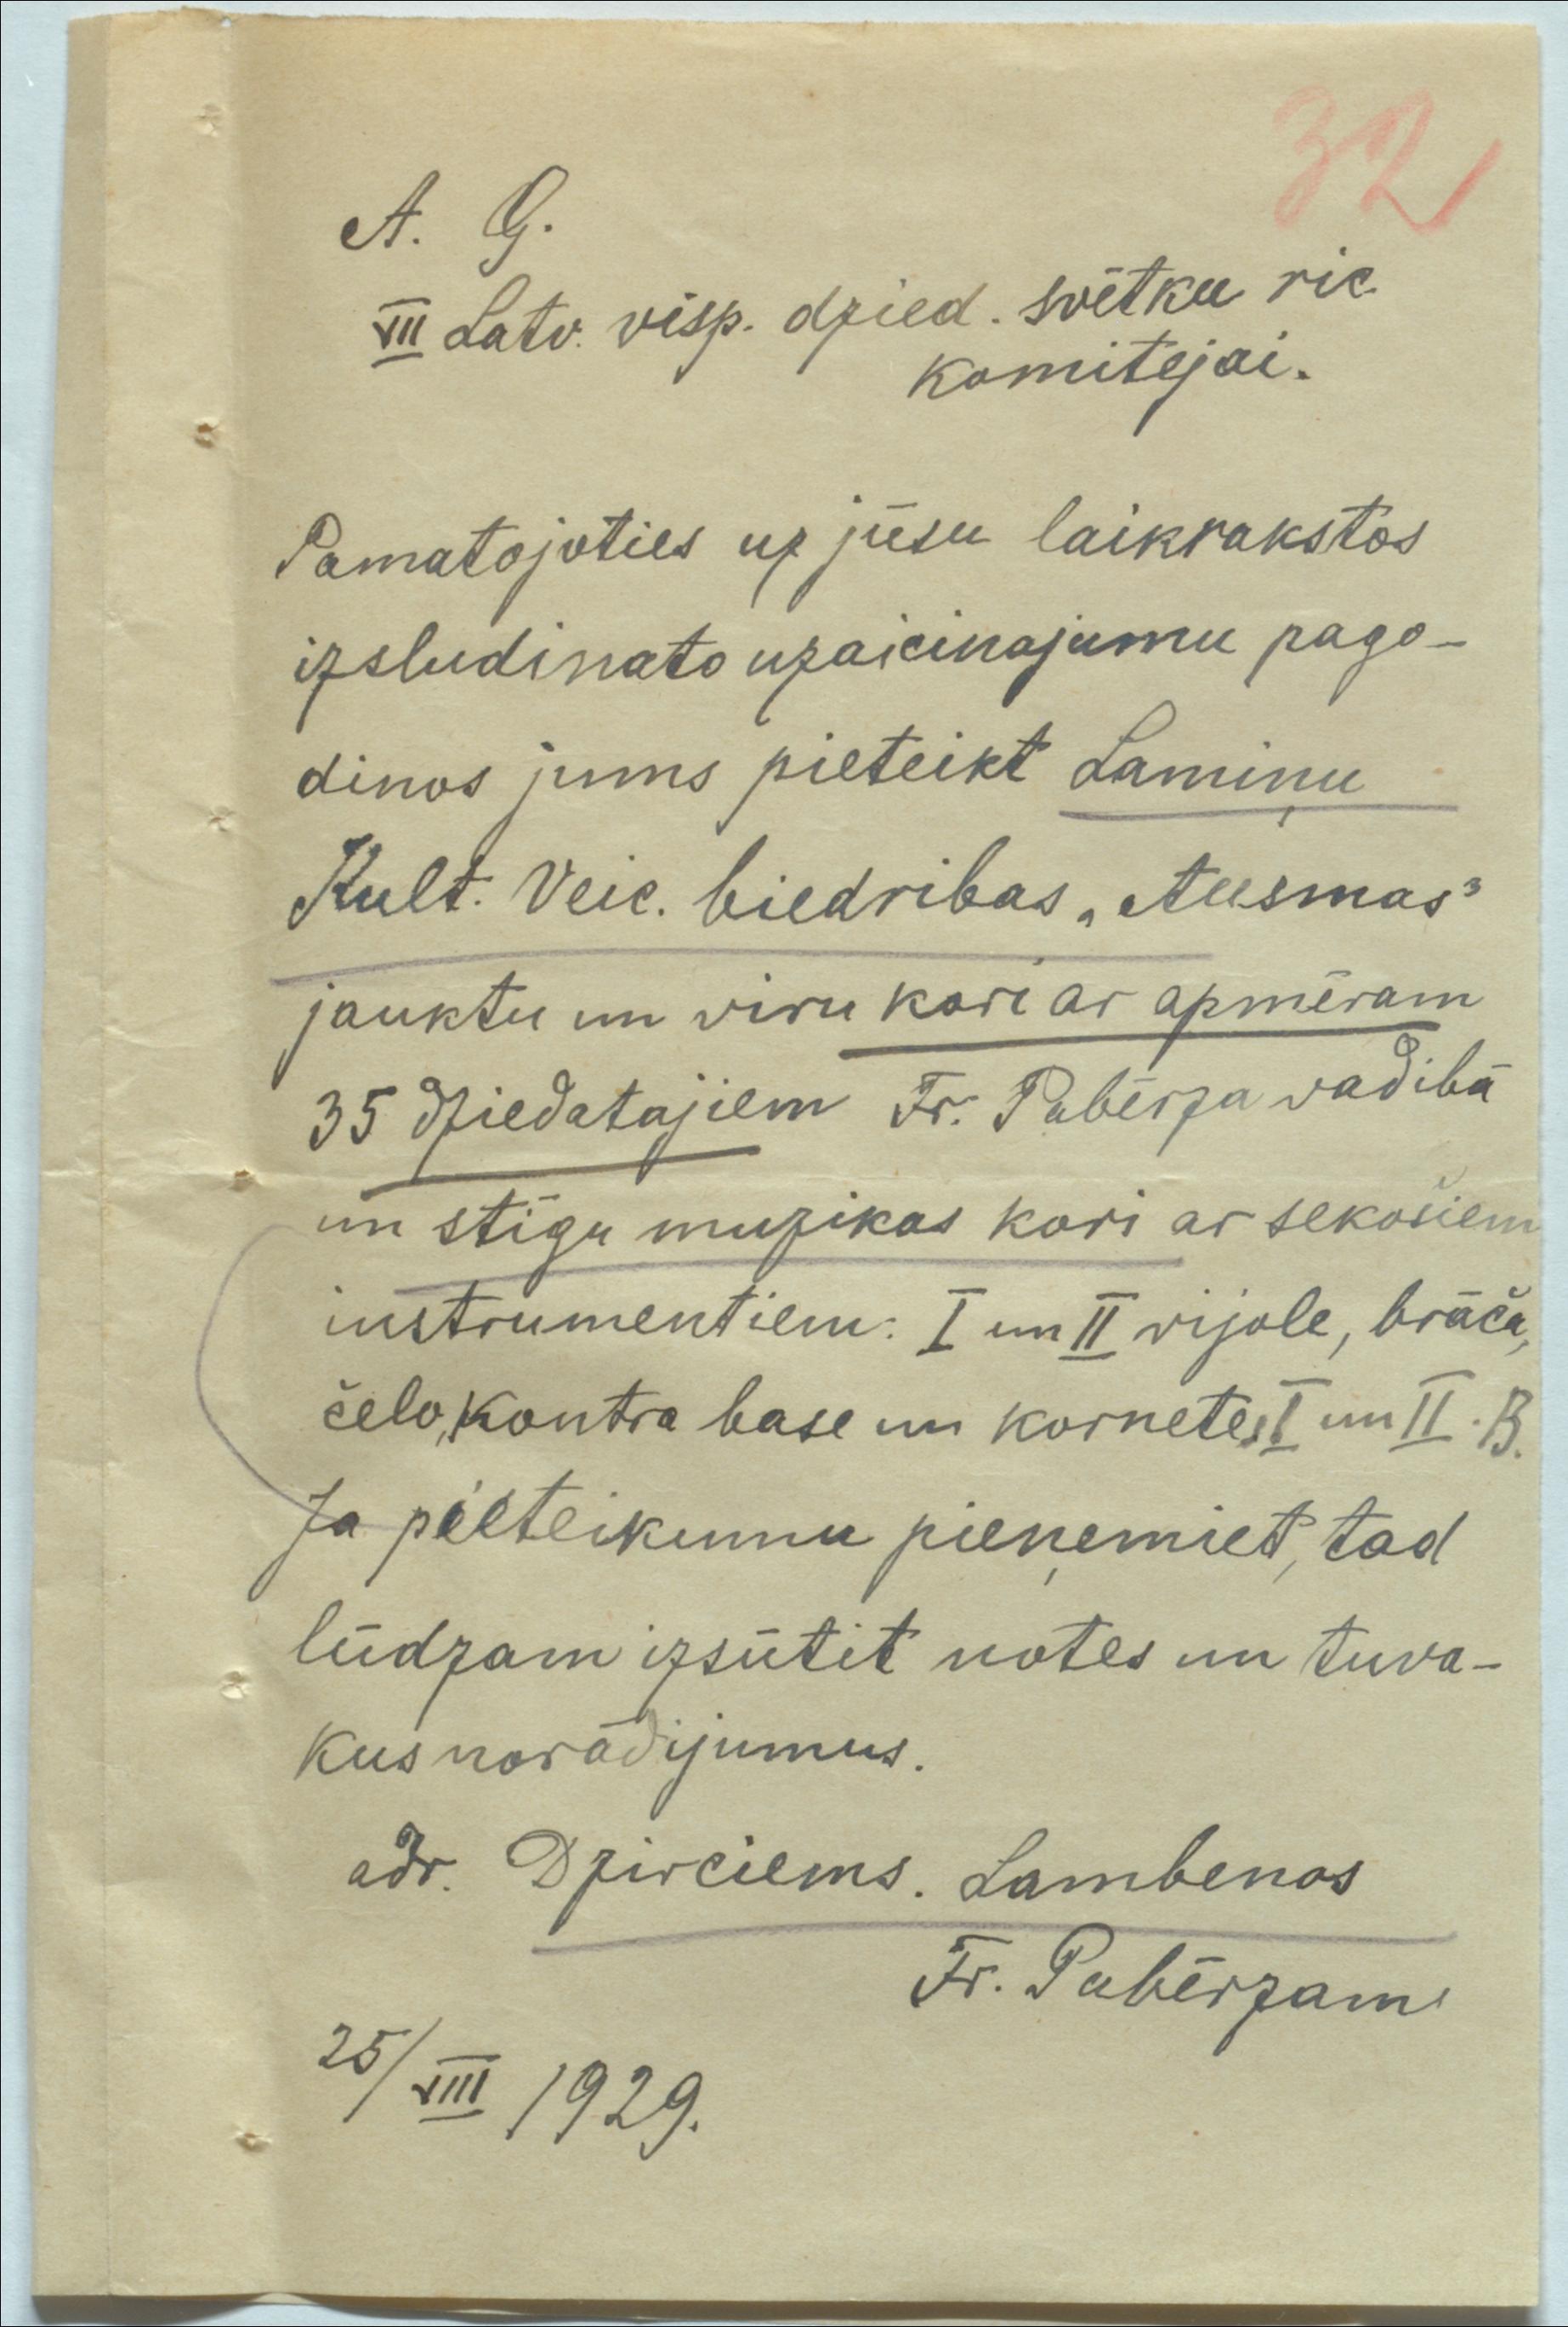 32
A. G.
VII Latv. visp. dzied. svētku ric.
komitejai.
Pamatojoties uz jūsu laikrakstos
izsludinato uzaicinajumu pago-
dinos jums pieteikt Lamiņu
Kult. Veic. biedribas „Ausmas"
jauktu un viru kori ar apmēram
35 dziedatajiem Fr. Pabērza vadibā
un stīgu muzikas kori ar sekošiem
instrumentiem: I un II vijole, brāča,
čelo, kontra base un kornetes I un II. B.
Ja pieteikumu pieņemiet, tad
lūdzam izsūtit notes un tuva-
kus norādijumus.
adr. Dzirciems. Lambenos
Fr. Pabērzam
25/VIII 1929.